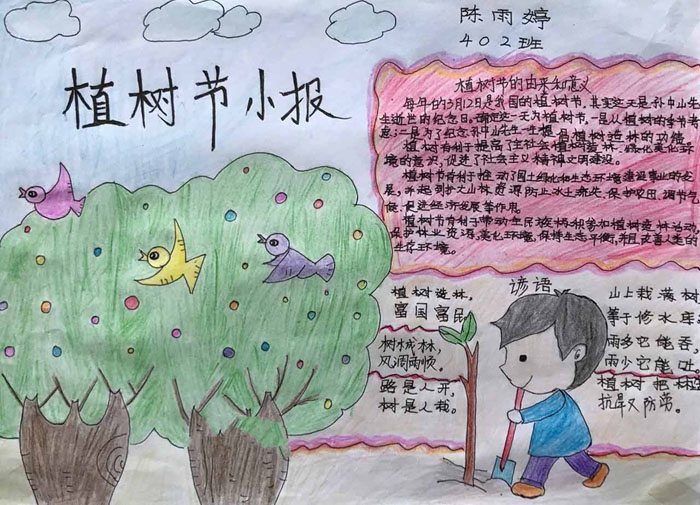 陈雨婷
402班
植树节小报
植树节的由来和意义
每年的3月12日是我国的植树节,其实这天是孙中山先
生逝世的纪念日。确定这一天为植树节,一是从植树的季节考
虑;二是为了纪念孙中山先生
植树造林的功德
植树有利于提高了全社会植树造林、绿化美化环
境的意识,促进了社会主义精神文明建设。
植树节有利于推动了国土绿化和生态环境建设事业的发
展,并起到扩大山林资源防止水土流失、保护农田、调节气
候、促进经济发展等作用
植树节有利于带动全民族积极参加植树造林活动,
保护林业资源,美化环境,保持生态平衡,和且改善人类的
生存环境。
谚语
植树造林,
富国富民
树成林,
风调雨顺。
路是人开,
树是人栽。
山上栽满树
等于修水库
雨多它能吞,
雨少它能吐。
植树把林
抗旱又防涝。